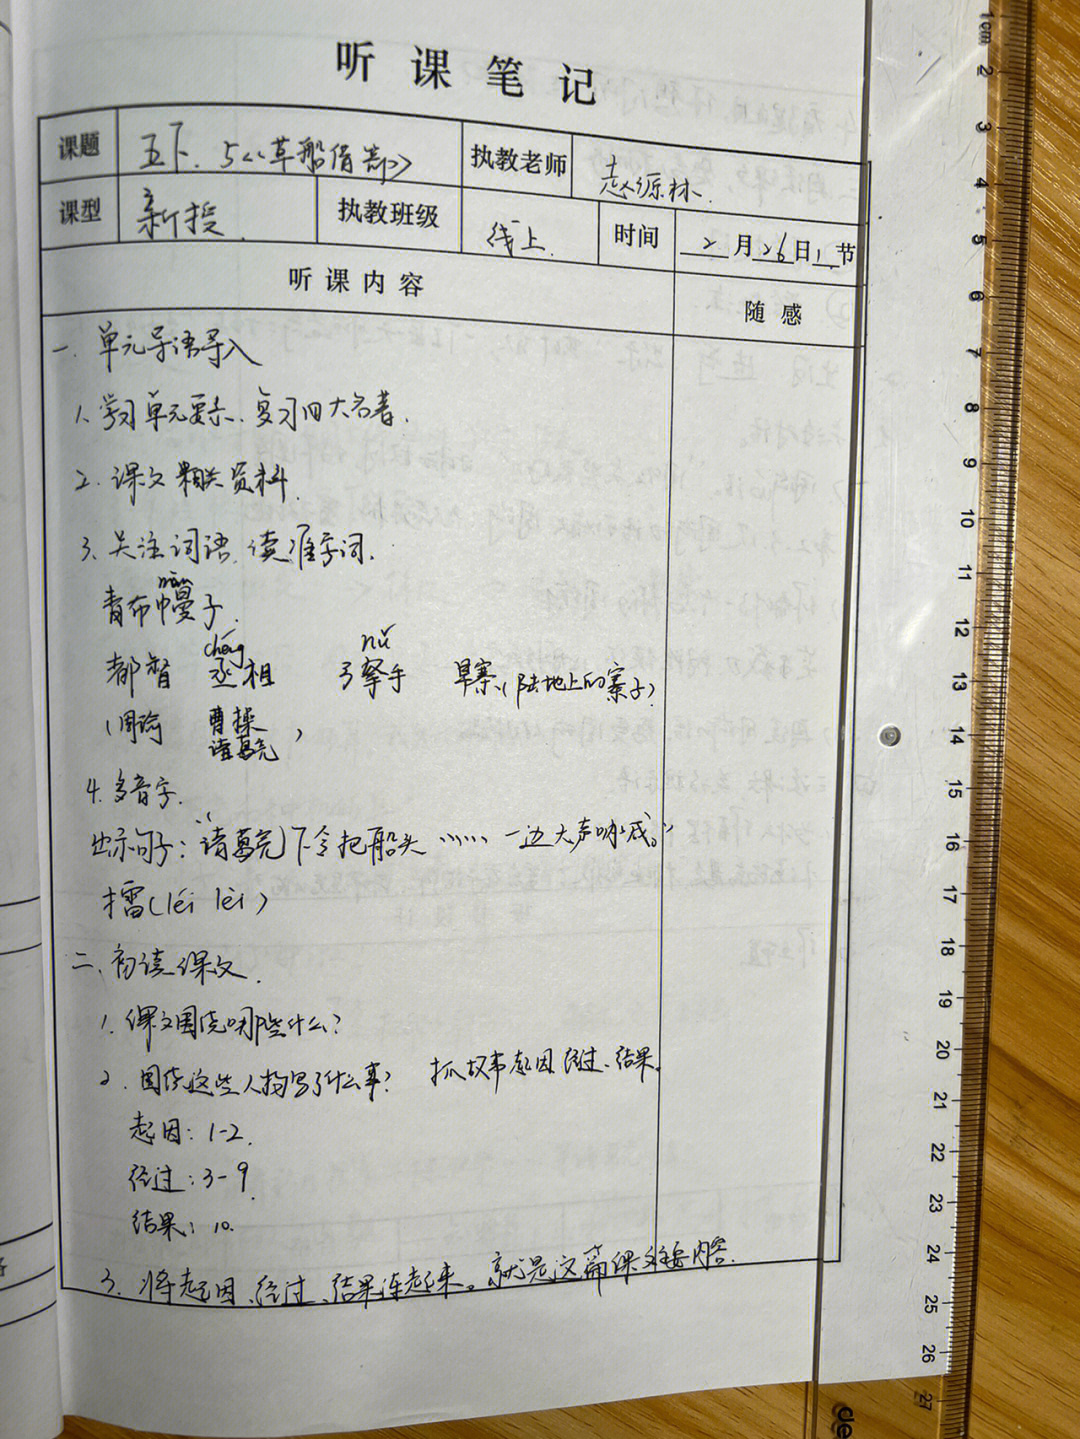 听课笔记
课题 五下.5《草船借箭》 执教老师 赵综林.
课型 新授. 执教班级 线上. 时间 2月26日1节
听课内容 随感
一.单元导语导入
1.学习单元要素、复习四大名著.
2.课文相关资料.
3.关注词语,读准字词.
màn
青布幔子.
chéng nǔ
都督 丞相 弓弩手 旱寨(陆地上的寨子)
周瑜 曹操
诸葛亮
4.多音字.
出示句子:“诸葛亮下令把船头……一边大声呐喊。”
擂(léi lèi)
二、初读课文.
1.课文围绕哪些什么?
2.围绕这些人物写了什么事? 抓故事起因、经过、结果.
起因:1-2.
经过:3-9.
结果:10.
3.将起因、经过、结果连起来。就是这篇课文主要内容.
1cm
2
3
4
5
6
7
8
9
10
11
12
13
14
15
16
17
18
19
20
21
22
23
24
25
26
27
de